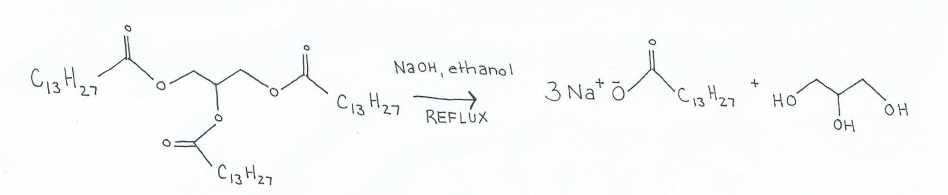 C13H27 O O O O C13H27 O O C13H27
NaOH, ethanol
REFLUX
3 Na+ -O O C13H27 + HO OH OH